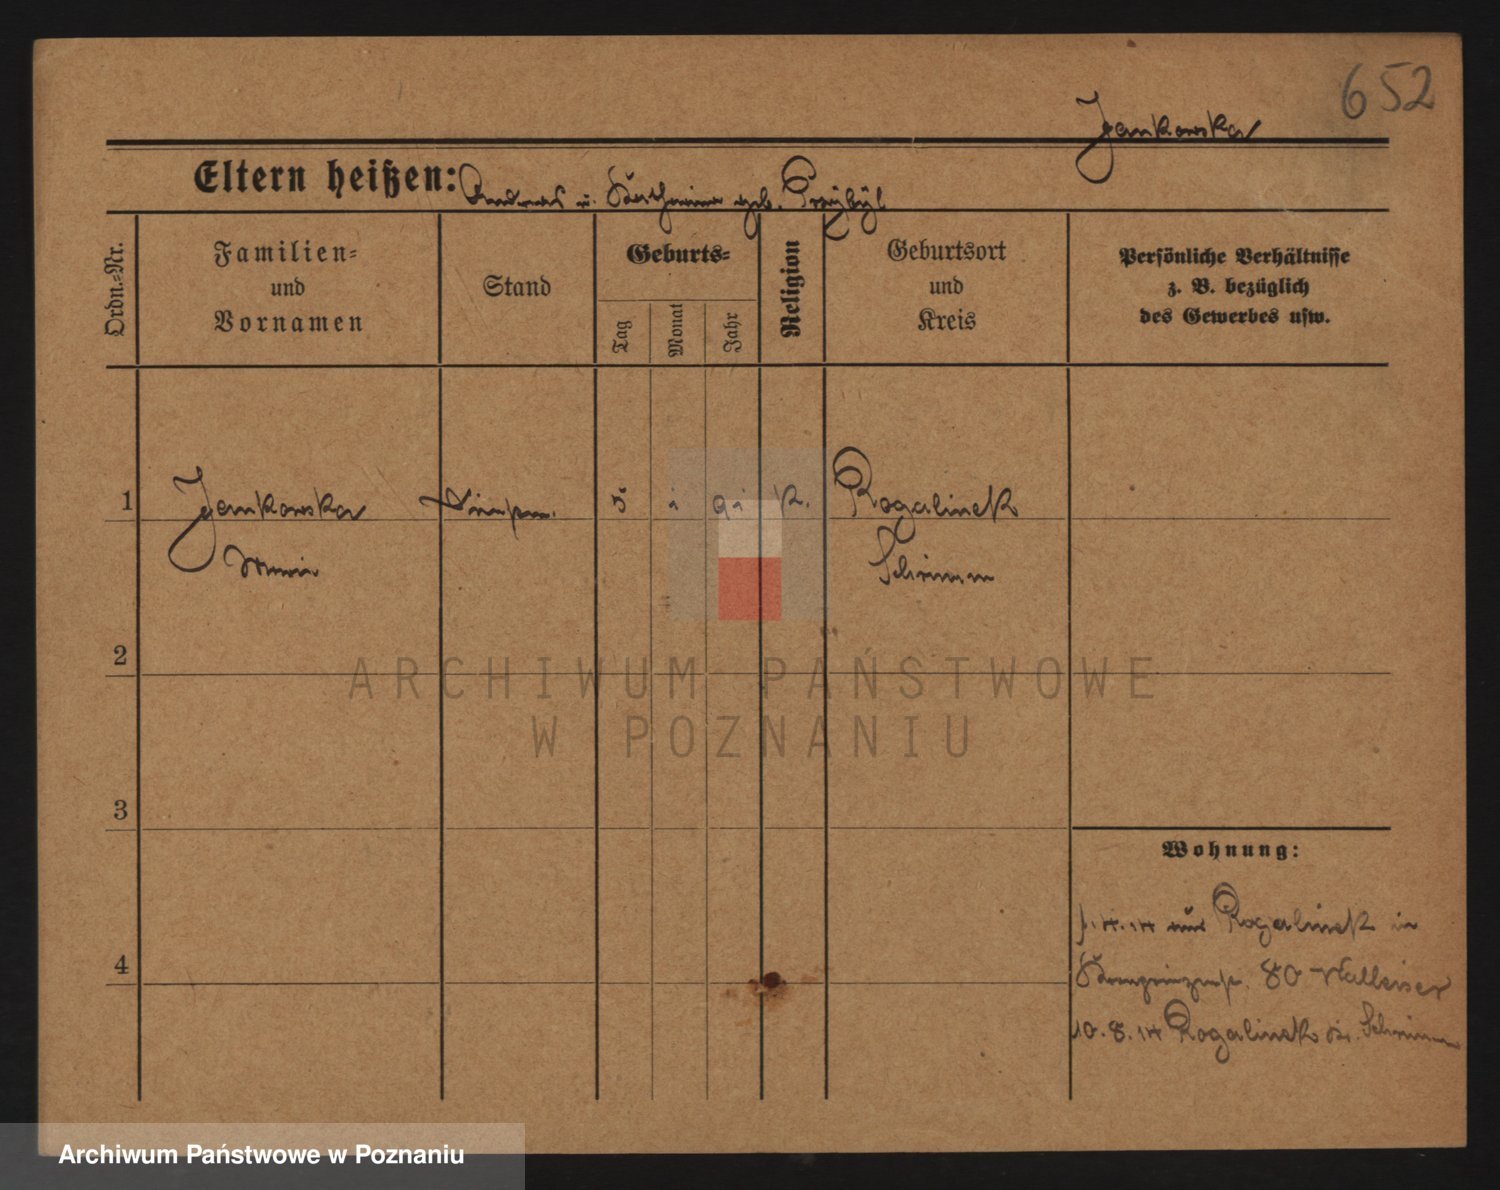 652
Jankowska
Eltern heißen: Andreas u. Katharina geb. Przybyl
Ordn.-Nr.
Familien-
und
Vornamen
Stand
Geburts-
Tag
Monat
Jahr
Religion
Geburtsort
und
Kreis
Persönliche Verhältnisse
z. B. bezüglich
des Gewerbes usw.
1 Jankowska 5 1 91 k. Rogalinek
Maria Schrimm
2
3
4
Wohnung:
1.4.14 aus Rogalinek in
Kronprinzenstr. 80
10.8.14 Rogalinek Schrimm
ARCHIWUM PAŃSTWOWE
W POZNANIU
Archiwum Państwowe w Poznaniu